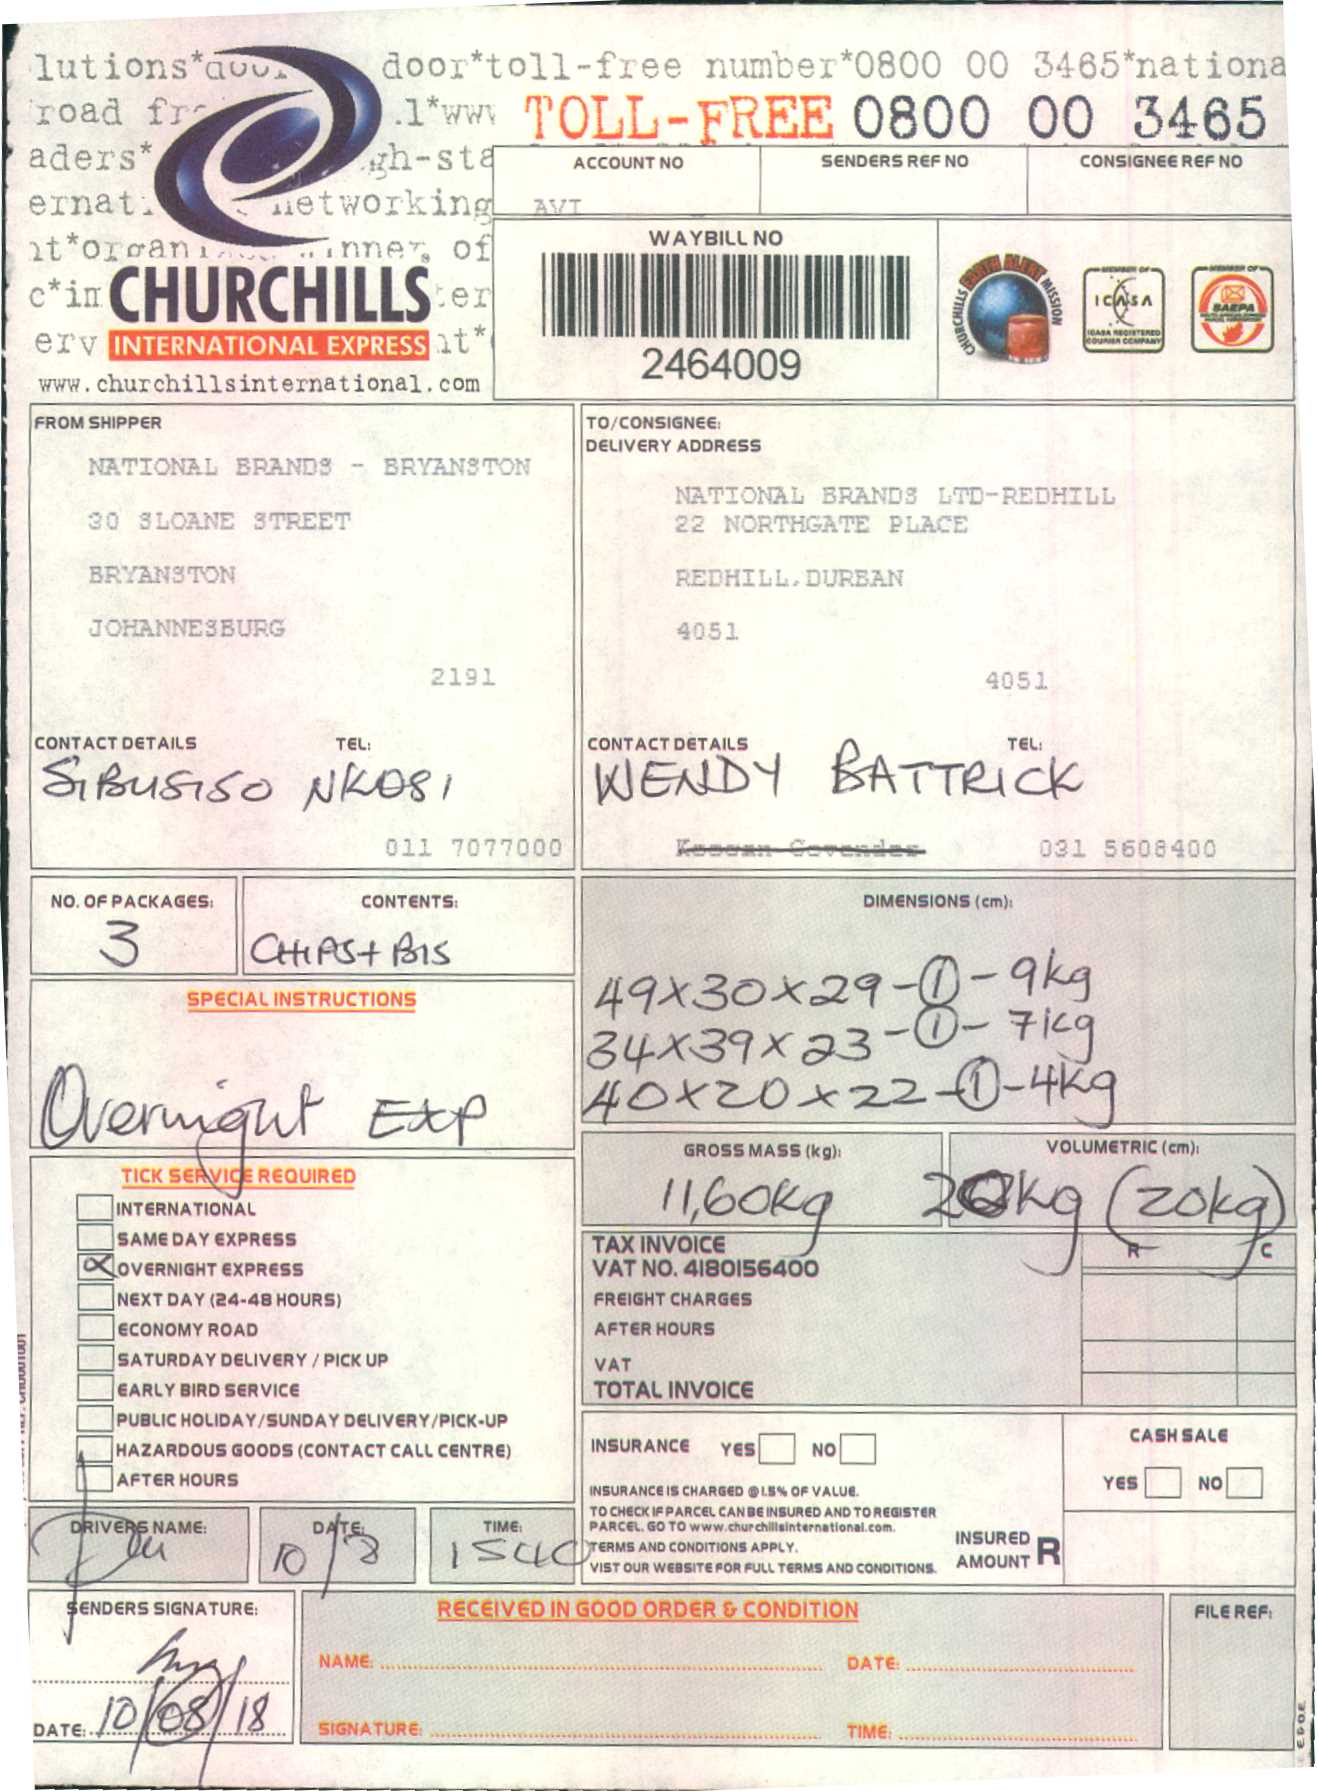 lutions* door*toll-free number*0800 00 3465*nationa
road fr .l*www
TOLL-FREE 0800 00 3465
aders* gh-sta
ernat networking
of
c*in
erv
CHURCHILLS
INTERNATIONAL EXPRESS
www.churchillsinternational.com
ACCOUNT NO SENDERS REF NO CONSIGNEE REF NO
AVI
WAYBILL NO
2464009
CHURCHILLS EARTH ALERT MISSION
MEMBER OF
ICASA
ICASA REGISTERED
COURIER COMPANY
MEMBER OF
SAEPA
FROM SHIPPER
NATIONAL BRANDS - BRYANSTON
30 SLOANE STREET
BRYANSTON
JOHANNESBURG
2191
CONTACT DETAILS TEL:
SIBUSISO NKOSI
011 7077000
TO/CONSIGNEE:
DELIVERY ADDRESS
NATIONAL BRANDS LTD-REDHILL
22 NORTHGATE PLACE
REDHILL,DURBAN
4051
4051
CONTACT DETAILS TEL:
WENDY BATTRICK
Govender 031 5608400
NO. OF PACKAGES:
3
CONTENTS:
CHIPS+ BIS
DIMENSIONS (cm):
49X30X29-1-9kg
34X39X23-1-7kg
40X20X22-1-4kg
SPECIAL INSTRUCTIONS
Overnight EXP
GROSS MASS (kg):
11,60kg
VOLUMETRIC (cm):
20kg (20kg)
TICK SERVICE REQUIRED
INTERNATIONAL
SAME DAY EXPRESS
X OVERNIGHT EXPRESS
NEXT DAY (24-48 HOURS)
ECONOMY ROAD
SATURDAY DELIVERY / PICK UP
EARLY BIRD SERVICE
PUBLIC HOLIDAY/SUNDAY DELIVERY/PICK-UP
HAZARDOUS GOODS (CONTACT CALL CENTRE)
AFTER HOURS
TAX INVOICE R C
VAT NO. 4180156400
FREIGHT CHARGES
AFTER HOURS
VAT
TOTAL INVOICE
INSURANCE YES NO
INSURANCE IS CHARGED @ 1.5% OF VALUE.
TO CHECK IF PARCEL CAN BE INSURED AND TO REGISTER
PARCEL. GO TO www.churchillsinternational.com.
TERMS AND CONDITIONS APPLY.
VIST OUR WEBSITE FOR FULL TERMS AND CONDITIONS.
INSURED
AMOUNT R
CASH SALE
YES NO
DRIVERS NAME:
DATE:
10/8
TIME:
1540
SENDERS SIGNATURE:
DATE: 10/08/18
RECEIVED IN GOOD ORDER & CONDITION
NAME: DATE:
SIGNATURE: TIME:
FILE REF: